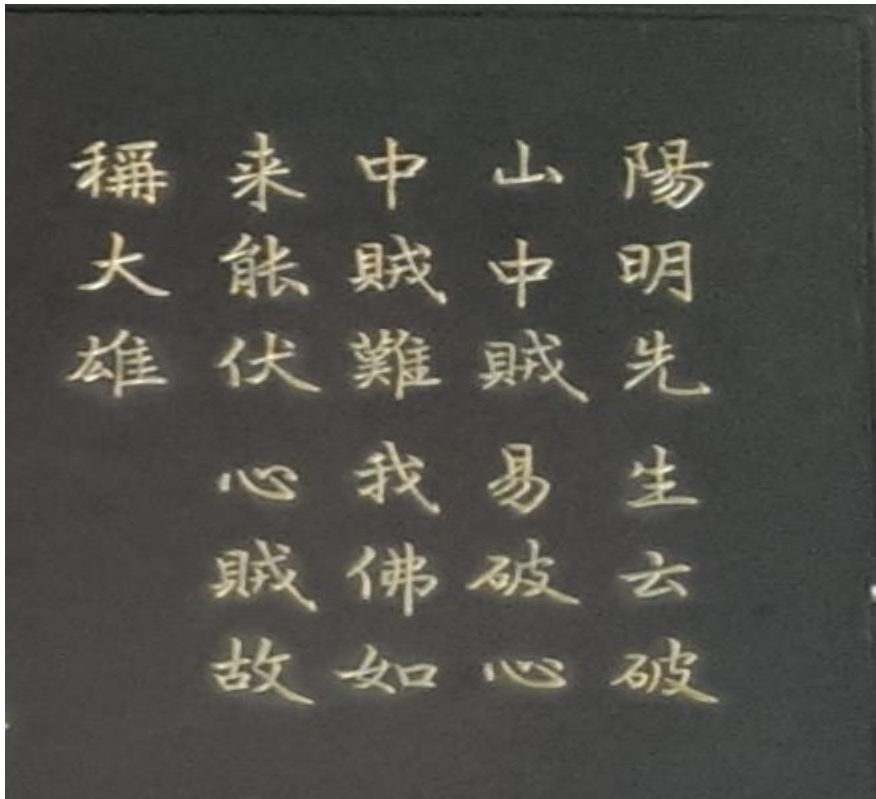 陽明先生云破
山中賊易破心
中賊難我佛如
来能伏心賊故
稱大雄